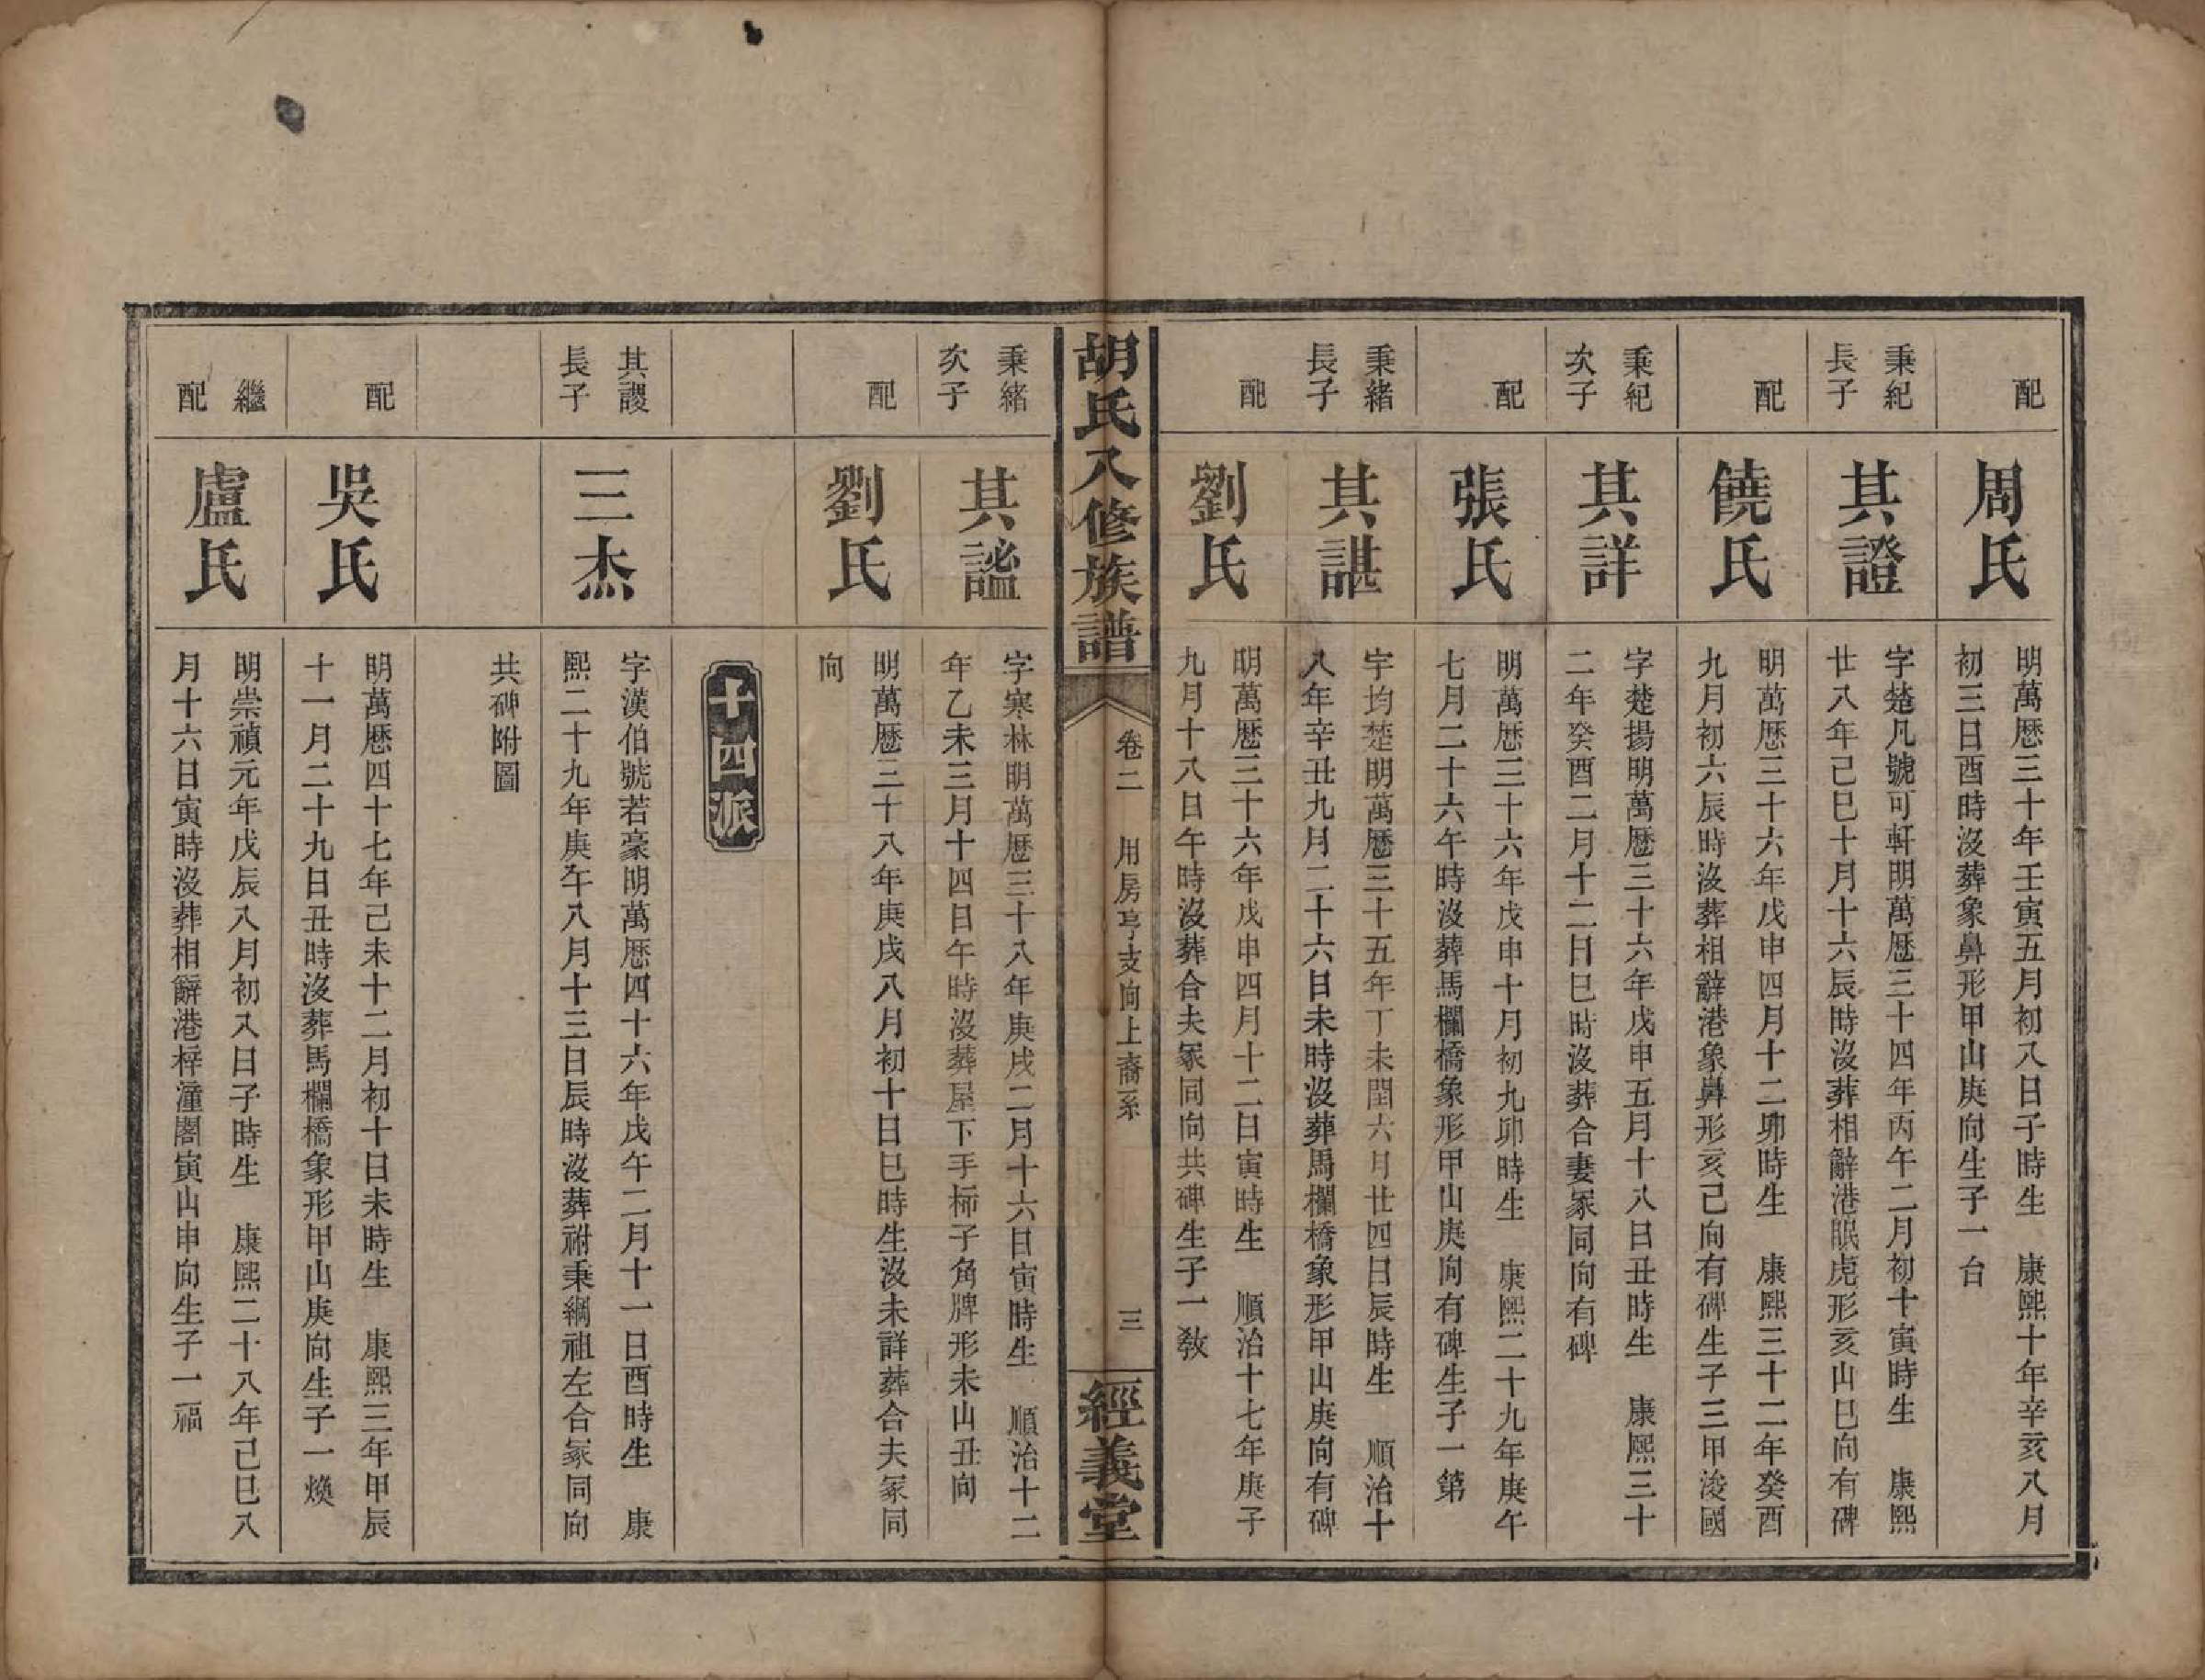 配
周氏
明萬歷三十年壬寅五月初八日子時生　康熙十年辛亥八月
初三日酉時沒葬象鼻形甲山庚向生子一台
秉紀
長子
其證
字楚凡號可軒明萬歷三十四年丙午二月初十寅時生　康熙
廿八年己巳十月十六辰時沒葬相辭港眠虎形亥山巳向有碑
配
饒氏
明萬歷三十六年戊申四月十二卯時生　康熙三十二年癸酉
九月初六辰時沒葬相辭港象鼻形亥己向有碑生子三甲浚國
秉紀
次子
其詳
字楚揚明萬歷三十六年戊申五月十八日丑時生　康熙三十
二年癸酉二月十二日巳時沒葬合妻冢同向有碑
配
張氏
明萬歷三十六年戊申十月初九卯時生　康熙二十九年庚午
七月二十六午時沒葬馬欄橋象形甲山庚向有碑生子一第
秉緒
長子
其諶
字均楚明萬歷三十五年丁未閏六月廿四日辰時生　順治十
八年辛丑九月二十六日未時沒葬馬欄橋象形甲山庚向有碑
配
劉氏
明萬歷三十六年戊申四月十二日寅時生　順治十七年庚子
九月十八日午時沒葬合夫冢同向共碑生子一敎
胡氏八修族譜
卷二　用房亨支向上裔系
三
經義堂
秉緒
次子
其謐
字寒林明萬歷三十八年庚戌二月十六日寅時生　順治十二
年乙未三月十四日午時沒葬屋下手柿子角牌形未山丑向
配
劉氏
明萬歷三十八年庚戌八月初十日巳時生沒未詳葬合夫冢同
向
十四派
其謖
長子
三杰
字漢伯號若豪明萬歷四十六年戊午二月十一日酉時生　康
熙二十九年庚午八月十三日辰時沒葬祔秉綱祖左合冢同向
共碑附圖
配
吳氏
明萬歷四十七年己未十二月初十日未時生　康熙三年甲辰
十一月二十九日丑時沒葬馬欄橋象形甲山庚向生子一煥
繼
配
盧氏
明崇禎元年戊辰八月初八日子時生　康熙二十八年己巳八
月十六日寅時沒葬相辭港梓潼閣寅山申向生子一福